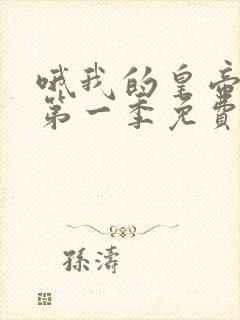 哦我的皇帝
第一季免費
孫濤